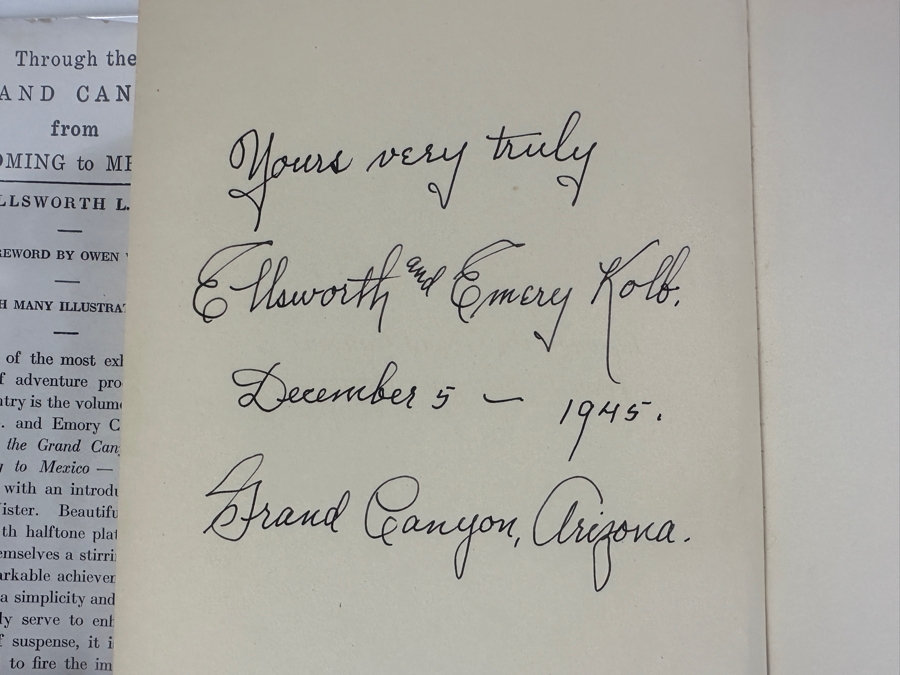 Through the
AND CAN
from
OMING to ME
LLSWORTH L.
EWORD BY OWEN
H MANY ILLUSTRA
of the most exh
f adventure pro
ntry is the volum
. and Emory C
the Grand Can
g to Mexico —
with an introdu
ister. Beautifu
th halftone plat
emselves a stirri
arkable achiever
a simplicity and
ly serve to enh
f suspense, it i
to fire the im
Yours very truly
Ellsworth and Emery Kolb.
December 5 — 1945.
Grand Canyon, Arizona.